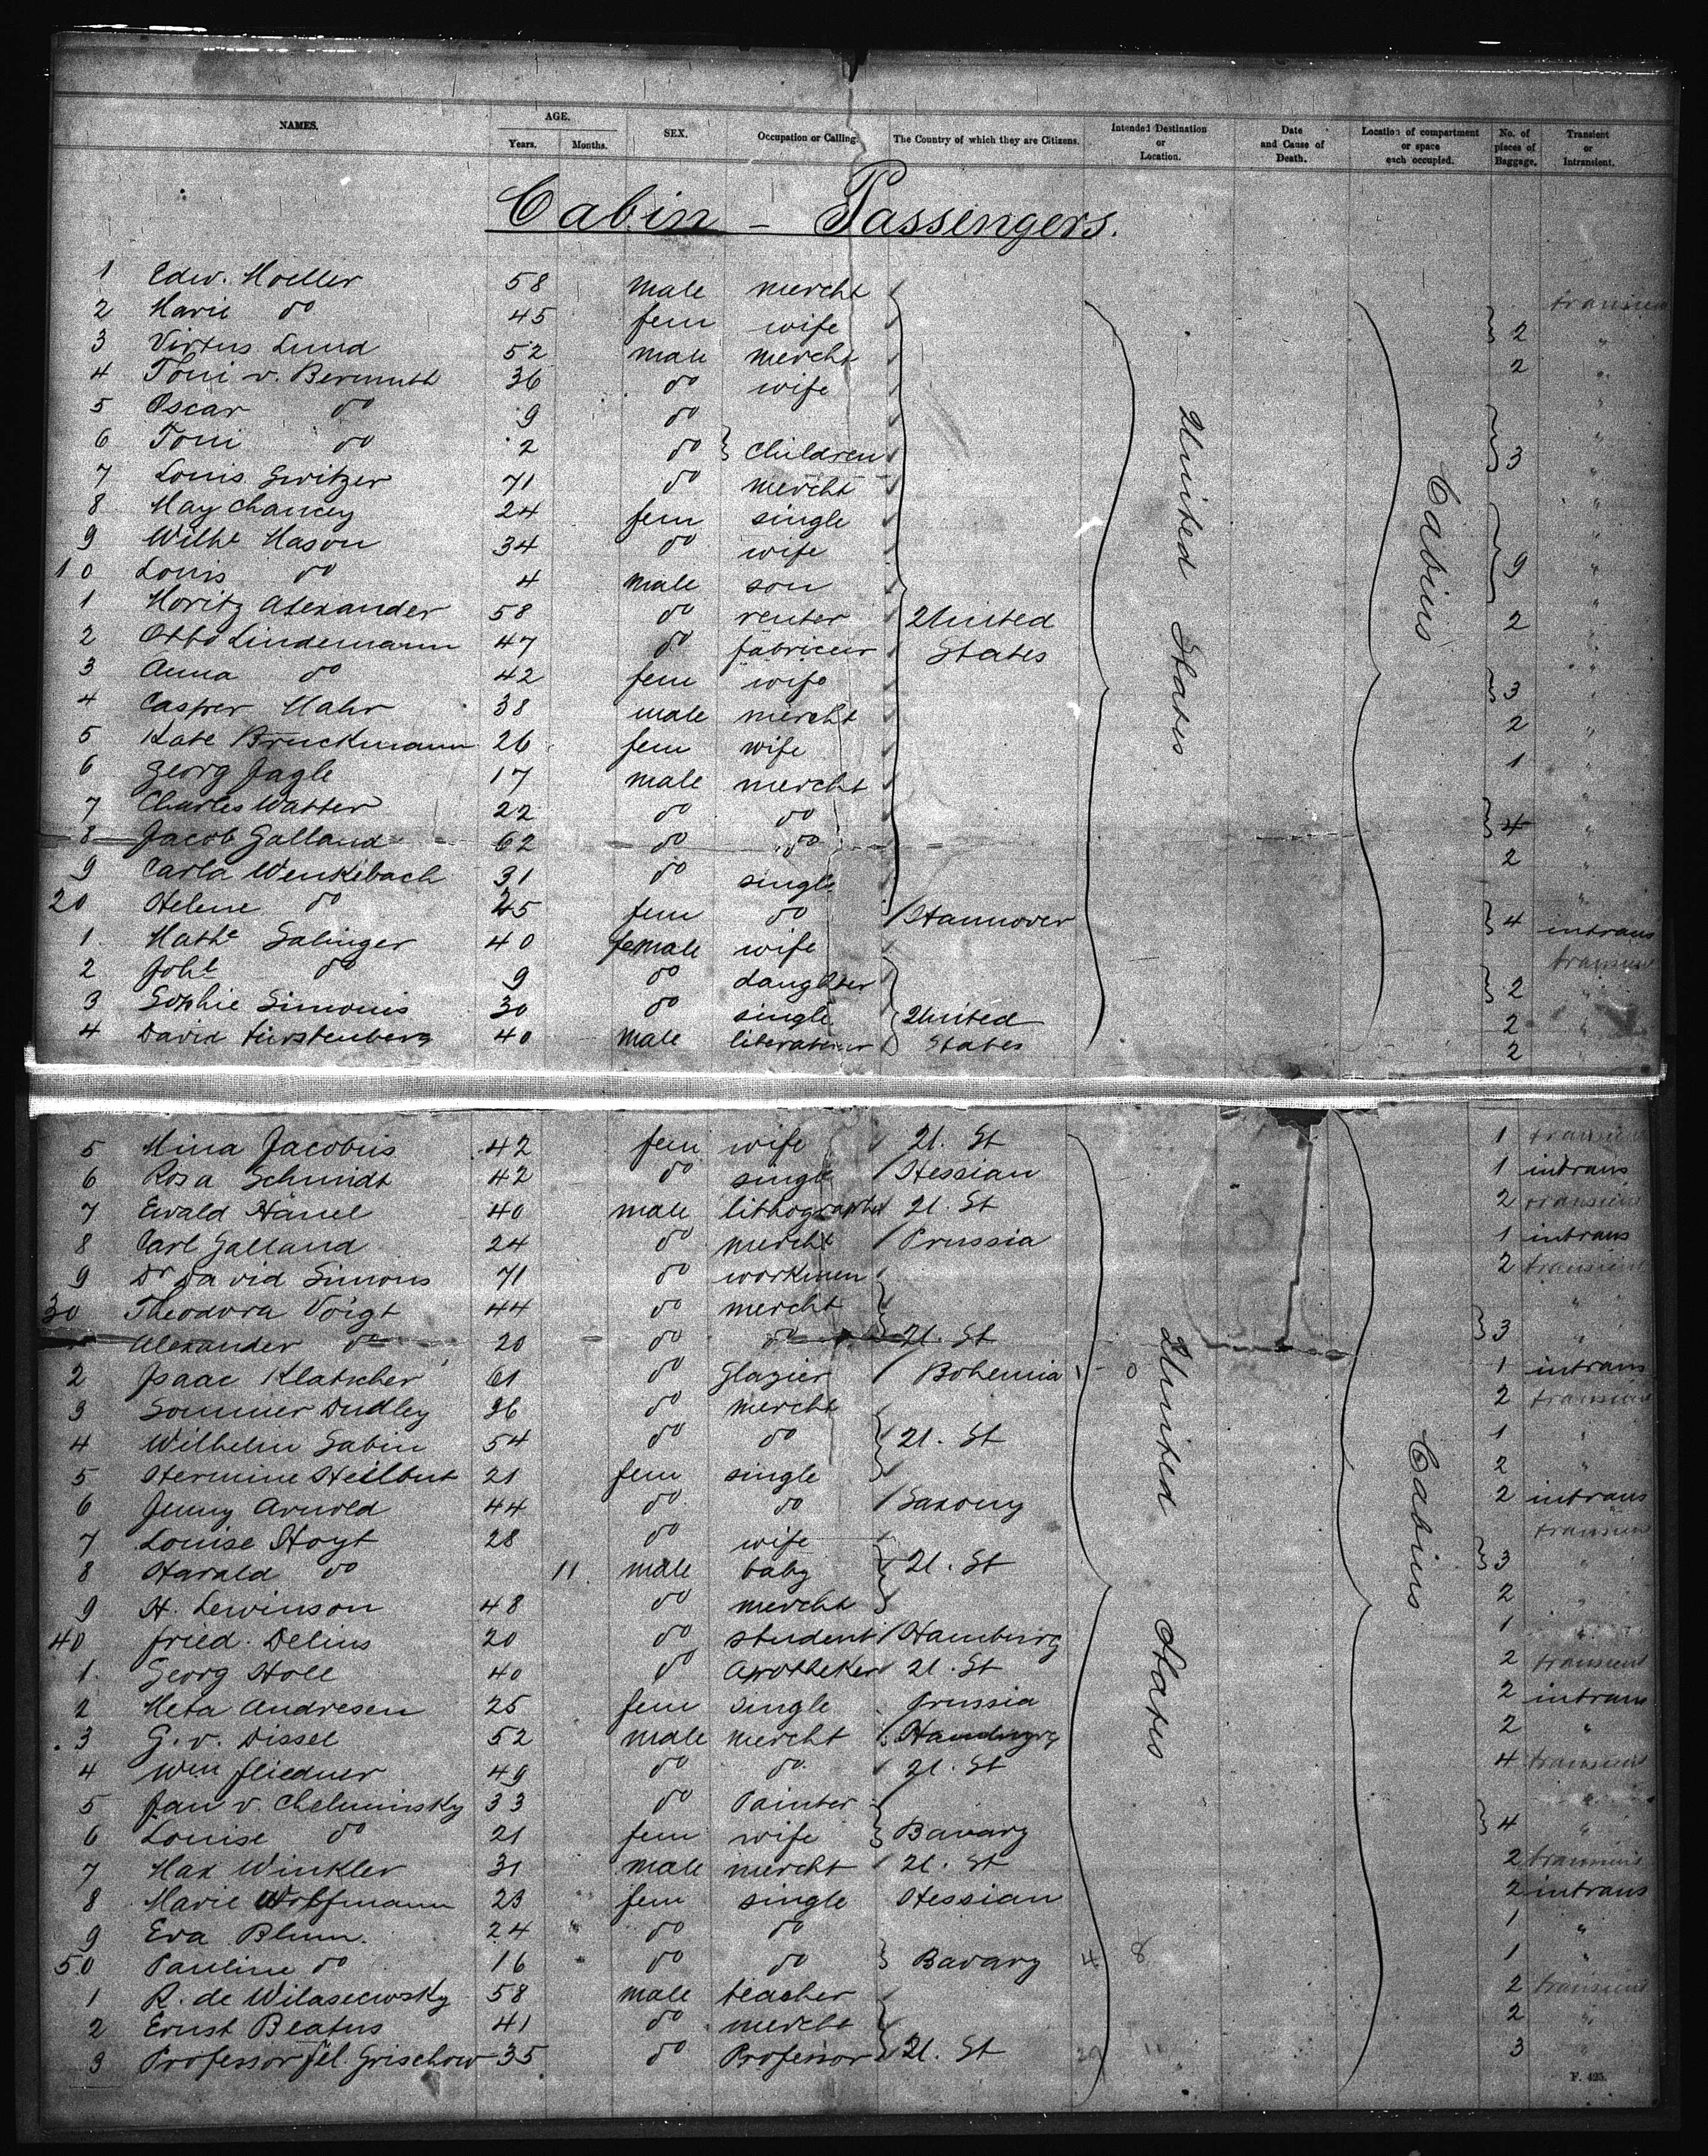 NAMES. AGE. Years. Months. SEX. Occupation or Calling. The Country of which they are Citizens. Intended Destination or Location. Date and Cause of Death. Location of compartment or space each occupied. No. of pieces of Baggage. Transient or Intransient.
Cabin - Passengers.
1 Edw. Moeller 58 male mercht transient
2 Marie do 45 fem wife 2 "
3 Virtus Lund 52 male mercht 2 "
4 Toni v. Bermuth 36 do wife "
5 Oscar do 9 do "
6 Toni do 2 do children 3 "
7 Louis Switzer 71 do mercht "
8 May Chancey 24 fem single "
9 Withe Mason 34 do wife 9 "
10 Louis do 4 male son "
1 Moritz Alexander 58 do renter United 2 "
2 Otto Lindemann 47 do fabricur States "
3 Anna do 42 fem wife 3 "
4 Casper Mahr 38 male mercht 2 "
5 Kate Bruckmann 26 fem wife 1 "
6 Georg Jagle 17 male mercht "
7 Charles Watter 22 do do 4 "
8 Jacob Galland 62 do do 2 "
9 Carla Wenkebach 31 do single "
20 Helene do 25 fem do Hannover 4 intrans
1. Mathe Salinger 40 female wife transient
2 Johe do 9 do daughter 2 "
3 Sophie Simonis 30 do single United 2 "
4 David Fürstenberg 40 male literateur States 2 "
United States
Cabins
5 Mina Jacobus 42 fem wife U. St 1 transient
6 Rosa Schmidt 42 do single Hessian 1 intrans
7 Ewald Hänel 40 male lithographer U. St 2 transient
8 Carl Galland 24 do mercht Prussia 1 intrans
9 Dr David Simons 71 do workmen 2 transient
30 Theodora Voigt 44 do mercht "
Alexander do 20 do do U. St 3 "
2 Isaac Klatscher 61 do Glazier Bohemia 1 0 1 intrans
3 Sommer Dudley 36 do mercht 2 transient
4 Wilhelm Sabin 54 do do U. St 1 "
5 Hermine Heilbut 21 fem single 2 "
6 Jenny Arnold 44 do do Saxony 2 intrans
7 Louise Hoyt 28 do wife transient
8 Harald do 11 male baby U. St 3 "
9 H. Lewinson 48 do mercht 2 "
40 Fried. Delius 20 do student Hamburg 1 "
1. Georg Holl 40 do Apotheker U. St 2 transient
2 Meta Andresen 25 fem single Prussia 2 intrans
3 G. v. Dissel 52 male mercht Hamburg 2 "
4 Wm Fliedner 49 do do U. St 4 transient
5 Jan v. Chelminsky 33 do Painter "
6 Louise do 21 fem wife Bavary 4 "
7 Max Winkler 31 male mercht U. St 2 transient
8 Marie Wolfmann 23 fem single Hessian 2 intrans
9 Eva Blum. 24 " do do 1 "
50 Pauline do 16 " do do Bavary 4 8 1 "
1 R. de Wilasecwsky 58 male teacher 2 transient
2 Ernst Beatus 41 do mercht 2 "
3 Professor Fel. Grischow 35 do Professor U. St 3 "
United States
Cabins
F. 425.